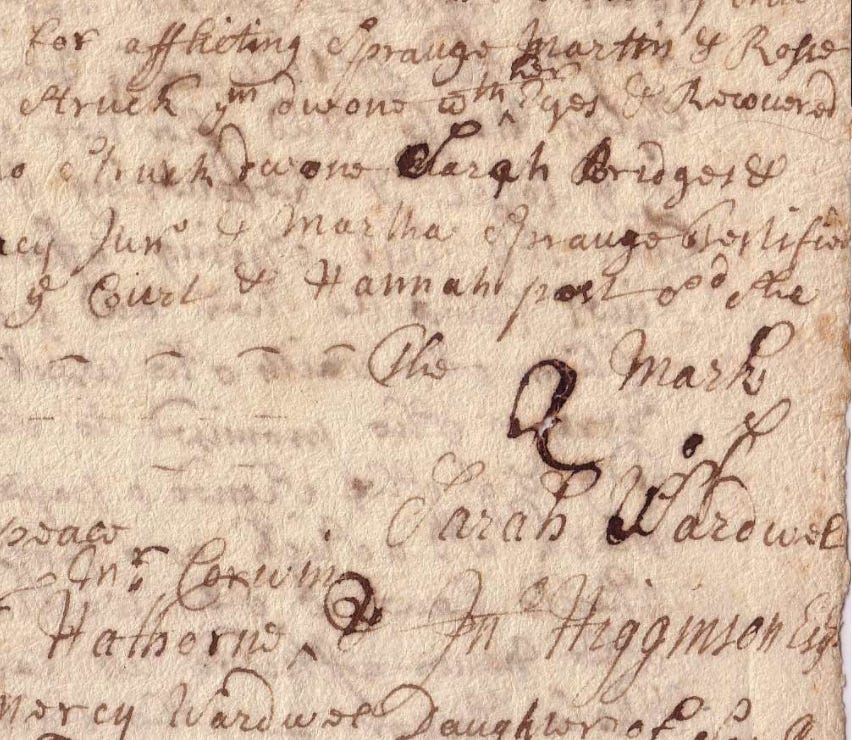 for afflicting Sprauge Martin & Rose
struck ym dwone wth her Eyes & Recovered
struck dwone Sarah Bridges &
Junr & Martha Sprauge
ye Court & Hannah post ood she
The Mark
of
Sarah Wardwel
peace
Jnr Corwin
Hathorne & Jno Higginson Esqr
mercy Wardwel Daughter of